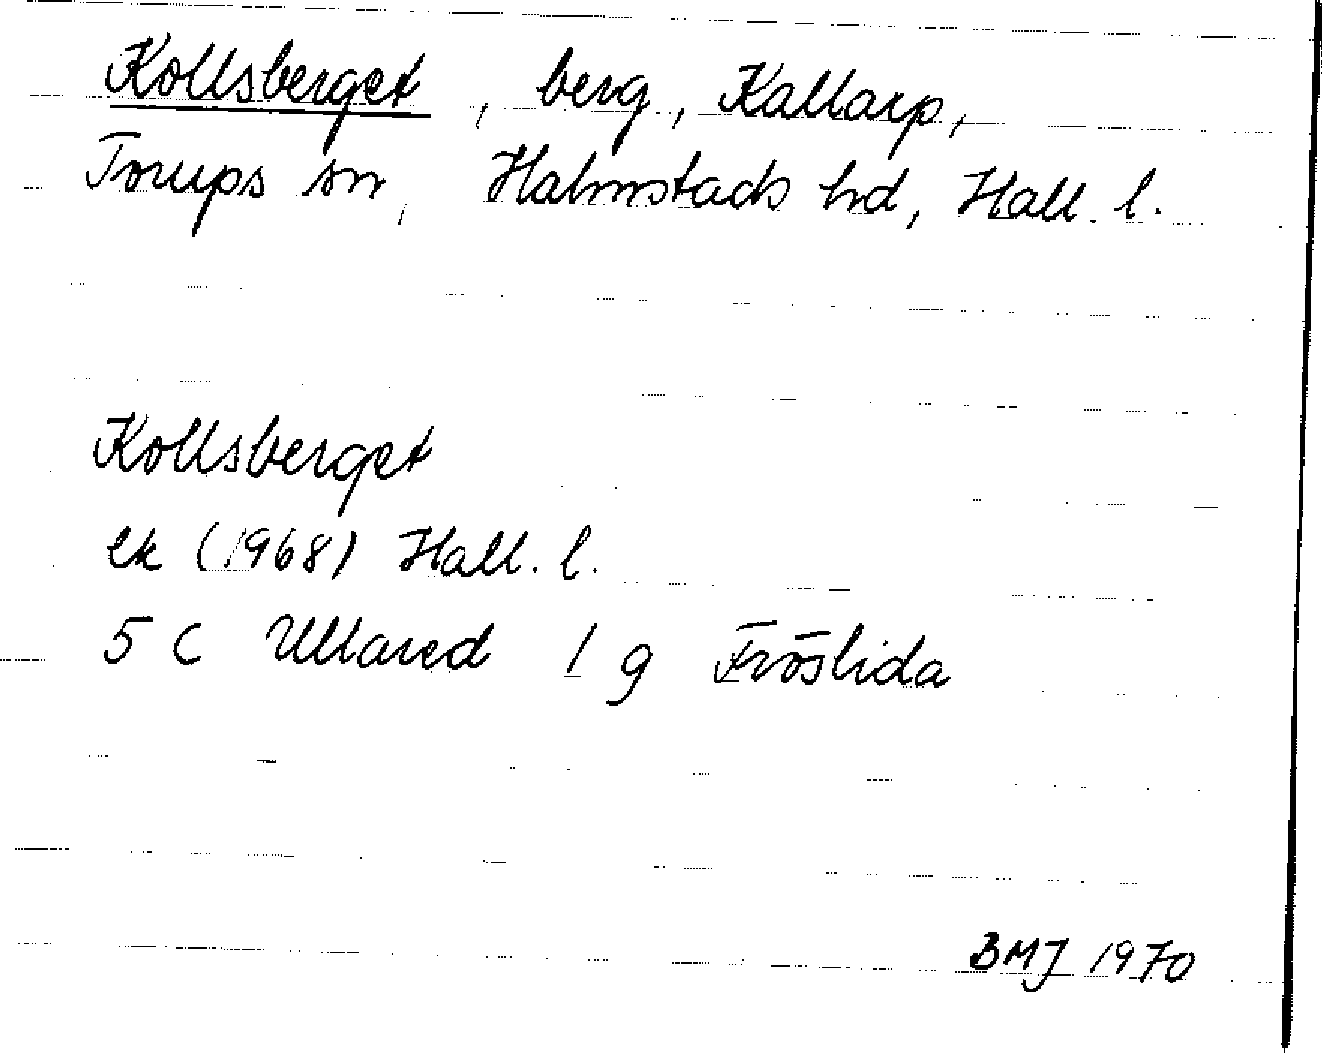 Kollsberget, berg, Kallarp,
Torups sn, Halmstads hd, Hall. l.
Kollsberget
ek (1968) Hall. l.
5 C Ullared 1 g Fröslida
BMJ 1970